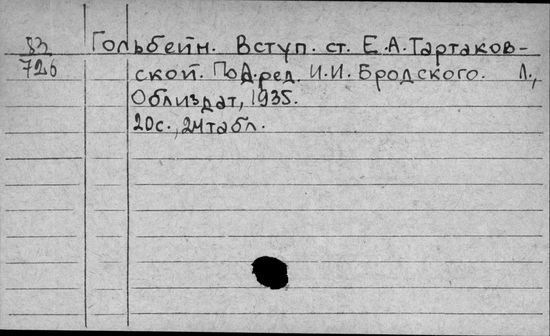 83 Гольбейн. Вступ. ст. Е.А.Тартаков-
726 ской. Под ред. И.И. Бродского. Л.,
Облиздат, 1935.
20с., 24табл.